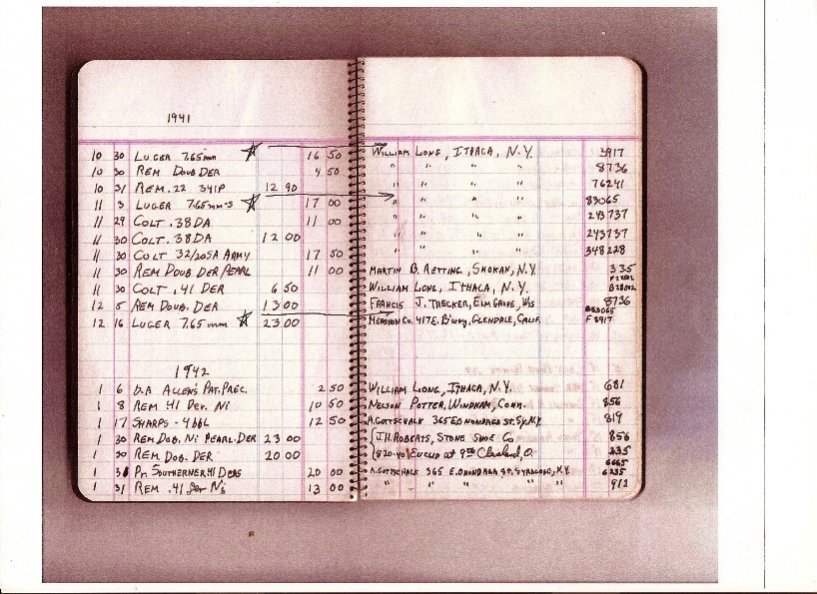 1941
10 30 LUGER 7.65mm ☆ 16 50 WILLIAM LONG, ITHACA, N.Y. 3917
10 30 REM DOUB DER 4 50 " " " " 8736
10 31 REM. 22 341P 12 90 " " " " 76241
11 3 LUGER 7.65mm-S ☆ 17 00 " " " " 83065
11 29 COLT .38 DA 11 00 " " " " 243737
11 30 COLT .38 DA 12 00 " " " " 243737
11 30 COLT 32/20 SA ARMY 17 50 " " " " 348228
11 30 REM DOUB DER PEARL 11 00 MARTIN B. RETTING, SHOKAN, N.Y. 335
11 30 COLT .41 DER 6 50 WILLIAM LONG, ITHACA, N.Y.
12 5 REM DOUB. DER 13 00 FRANCIS J. TRECKER, ELM GROVE, WIS 8736
12 16 LUGER 7.65 mm ☆ 23 00 417 E. B'way, GLENDALE, CALIF. 83065 F 8917
1942
1 6 D.A ALLENS PAT. PREC. 2 50 WILLIAM LONG, ITHACA, N.Y. 681
1 8 REM 41 DER. NI 10 50 NELSON POTTER, WINDHAM, CONN. 856
1 17 SHARPS - 4 bbl 12 50 A. GOTTSCHALK 365 E ONONDAGA ST. SY. N.Y. 819
1 30 REM DOB. NI PEARL-DER 23 00 J.H. ROBERTS, STONE SHOE CO 856
1 30 REM DOB. DER 20 00 820-40 EUCLID at 9th Cleveland, O. 335
1 31 Pr. SOUTHERNER 41 DERS 20 00 A. GOTTSCHALK 365 E. ONONDAGA ST. SYRACUSE, N.Y. 6235
1 31 REM .41 Der Ni 13 00 " " " " " 912